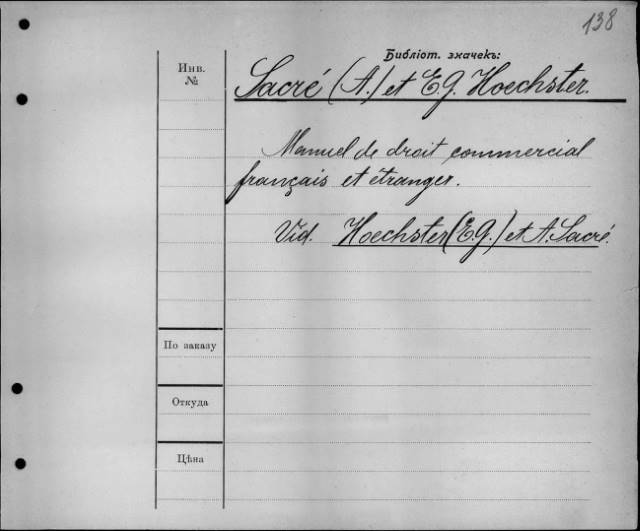 138
Библіот. значекъ:
Инв.
№
Sacré (A.) et E.G. Hoechster.
Manuel de droit commercial
français et étranger.
Vid. Hoechster (E.G.) et A. Sacré.
По заказу
Откуда
Цѣна